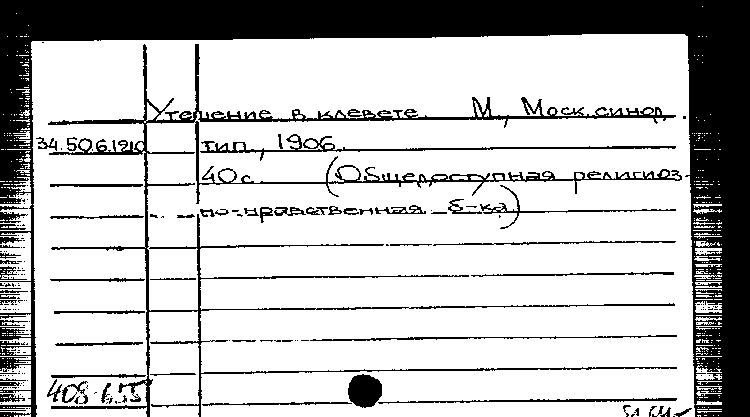 Утешение в клевете. М., Моск. синод.
34.50.6.1210 тип., 1906.
40 с. (Общедоступная религиоз-
но-нравственная б-ка)
408-655